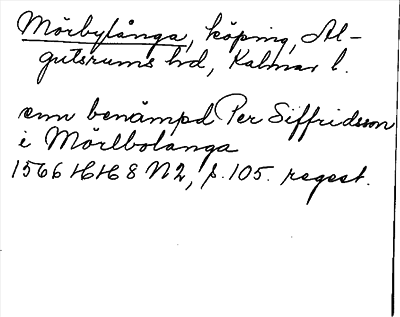 Mörbylånga, köping, Al-
gutsrums hd, Kalmar l.
enn benämpd Per Siffridsson
i Mörlbolanga
1566 HH 8 N 2, s. 105. regest.